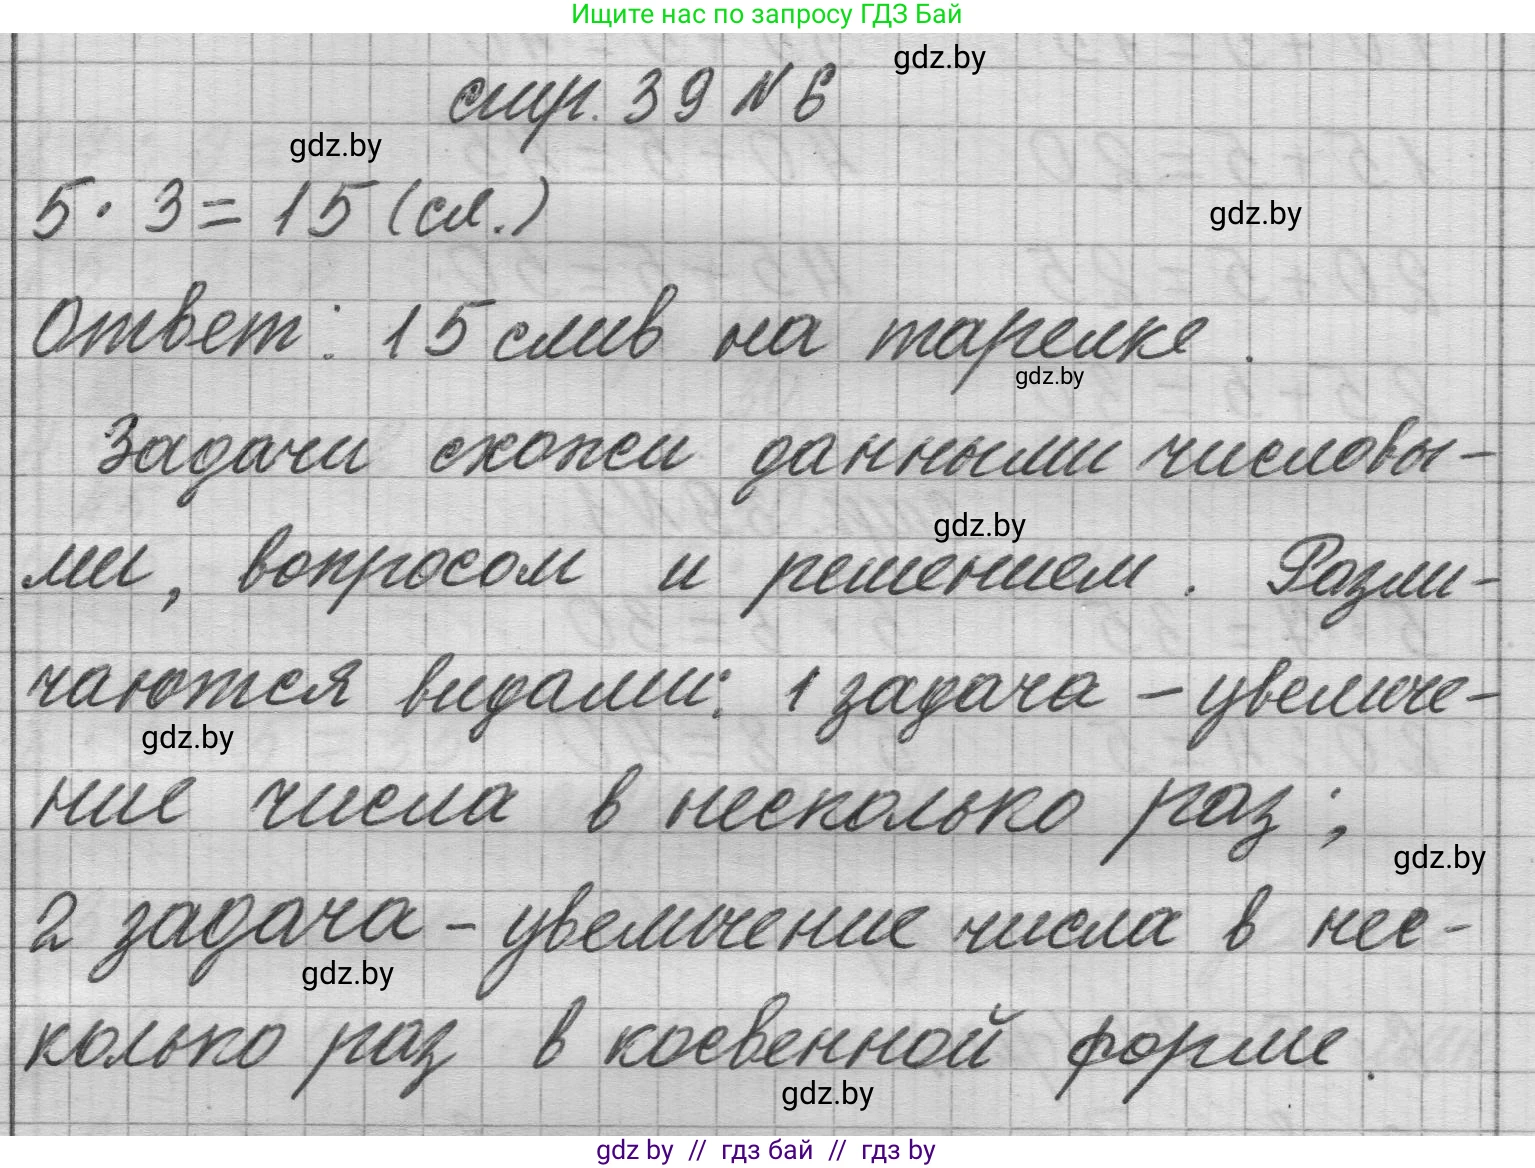 Ищите нас по запросу ГДЗ Бай
gdz.by
стр. 39 № 6
gdz.by
5 · 3 = 15 (сл.)
gdz.by
Ответ: 15 слив на тарелке.
gdz.by
Задачи схожи данными числовы-
gdz.by
ми, вопросом и решением. Разли-
чаются видами: 1 задача - увеличе-
gdz.by
ние числа в несколько раз;
gdz.by
2 задача - увеличение числа в нес-
gdz.by
колько раз в косвенной форме.
gdz.by
gdz by // гдз бай // гдз by